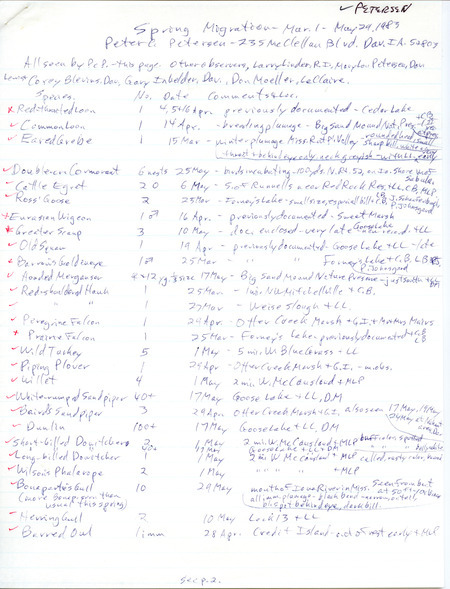 ✓ PETERSEN
Spring Migration - Mar. 1 - May 29, 1983
Peter C. Petersen - 235 McClellan Blvd. Dav. IA. 52803
All seen by PCP - this page. Other observers, Larry Linder, R.I., Mary Lou Petersen, Dav.
Corey Blevins, Dav., Gary Inhelder, Dav., Don Moeller, LeClaire.
Species. No. Date Comments & Loc.
Red-throated Loon 4,5+6 Apr. previously documented - Cedar Lake
✓ Common Loon 1 14 Apr. - breeding plumage - Big Sand Mound Nat. Pres.
✓ Eared Grebe 15 Mar - winter plumage Miss. R. at P. Valley - rounded head, small
throat + behind eye only, neck greyish
✓ Double-cr. Cormorant 6 nests 25 May - birds incubating - 100 yds. N.
✓ Cattle Egret 20 6 May S. of Runnells near Red Rock Res. + LL, CB, MLP
✓ Ross' Goose 2 25 Mar - Forney's Lake - small size,
Eurasian Wigeon 1♂ 16 Apr. - previously documented - Sweet Marsh
Greater Scaup 3 10 May - doc. enclosed - very late Goose Lake + LL
✓ Old Squaw 1 19 Apr - previously documented - Goose Lake + LL - late
Barrow's Goldeneye 1♂ 25 Mar - " " Forney's Lake + G.B.
✓ Hooded Merganser ♀+12 yg. ½ size 17 May - Big Sand Mound Nature Preserve - just South
✓ Red-shouldered Hawk 1 25 Mar - 1 mi. N.W. Mitchellville + C.B.
✓ " " 1 27 Mar - Weise Slough + LL
✓ Peregrine Falcon 1 29 Apr - Otter Creek Marsh + G.I.
Prairie Falcon 1 25 Mar - Forney's Lake - previously documented + CB
✓ Wild Turkey 5 1 May - 5 mi. W. Blue Grass + LL
✓ Piping Plover 1 29 Apr - Otter Creek Marsh + G.I. - m.obs.
✓ Willet 4 1 May 2 mi. W. McCausland + MLP
✓ White-rumped Sandpiper 40+ 17 May Goose Lake + LL, DM
✓ Baird's Sandpiper 3 29 Apr Otter Creek Marsh + G.I. also seen 17 May, 19 May
✓ Dunlin 100+ 17 May Goose Lake + LL, DM
✓ Short-billed Dowitcher 2 1 May 2 mi. W. McCausland + MLP
40+ 17 May Goose Lake + LL + DM
✓ Long-billed Dowitcher 1 1 May 2 mi. W. McCausland + MLP called, rusty
✓ Wilson's Phalarope 2 1 May " " " + MLP
✓ Bonaparte's Gull 10 29 May mouth of Iowa River in Miss. seen from boat
(more Bonap. gven than all imm. plumage - black band
usual this spring) bk. spot behind eye, dark bill.
✓ Herring Gull 2 10 May Lock 13 + LL
✓ Barred Owl 1 imm 28 Apr. Credit Island - out of nest, early + MLP
see p. 2.